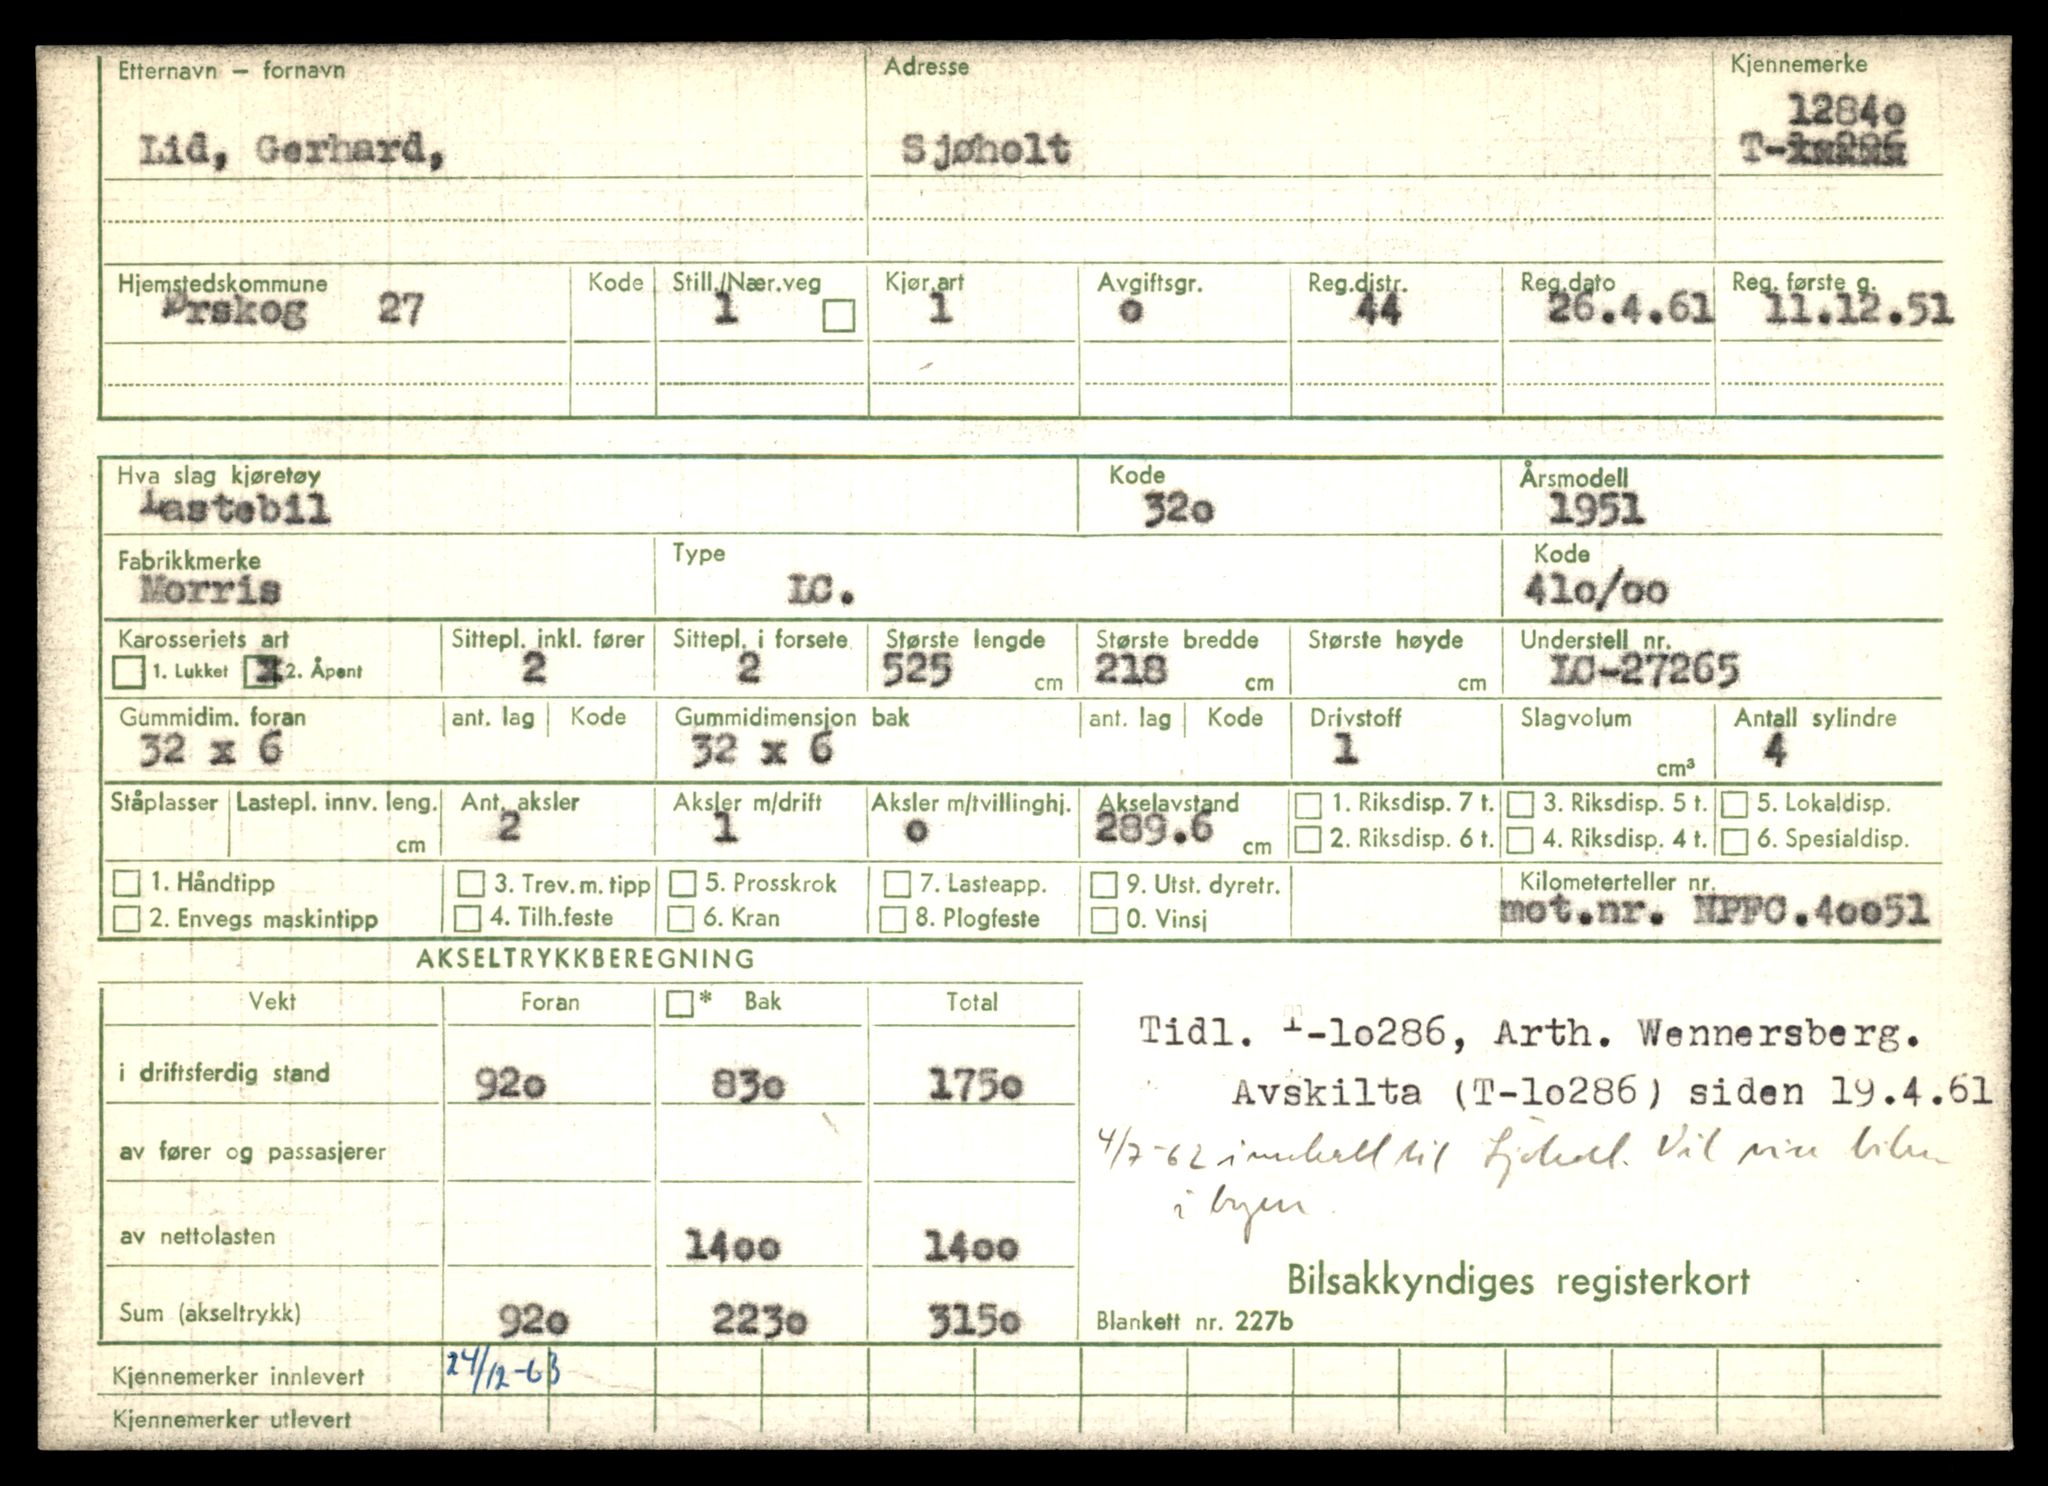 Etternavn – fornavn Adresse Kjennemerke
12840
Lid, Gerhard, Sjøholt T-10286
Hjemstedskommune Kode Still./Nær.veg Kjør.art Avgiftsgr. Reg.distr. Reg.dato Reg. første g.
Ørskog 27 1 1 o 44 26.4.61 11.12.51
Hva slag kjøretøy Kode Årsmodell
Lastebil 32o 1951
Fabrikkmerke Type Kode
Morris LC. 41o/oo
Karosseriets art Sittepl. inkl. fører Sittepl. i forsete Største lengde Største bredde Største høyde Understell nr.
1. Lukket X 2. Åpent 2 2 525 cm 218 cm cm LC-27265
Gummidim. foran ant. lag Kode Gummidimensjon bak ant. lag Kode Drivstoff Slagvolum Antall sylindre
32 x 6 32 x 6 1 cm³ 4
Ståplasser Lastepl. innv. leng. Ant. aksler Aksler m/drift Aksler m/tvillinghj. Akselavstand 1. Riksdisp. 7 t. 3. Riksdisp. 5 t. 5. Lokaldisp.
cm 2 1 o 289.6 cm 2. Riksdisp. 6 t. 4. Riksdisp. 4 t. 6. Spesialdisp.
1. Håndtipp 3. Trev. m. tipp 5. Prosskrok 7. Lasteapp. 9. Utst. dyretr. Kilometerteller nr.
2. Envegs maskintipp 4. Tilh.feste 6. Kran 8. Plogfeste 0. Vinsj mot.nr. NPFC.4oo51
AKSELTRYKKBEREGNING
Vekt Foran * Bak Total
Tidl. T-1o286, Arth. Wennersberg.
i driftsferdig stand 92o 83o 175o
Avskilta (T-1o286) siden 19.4.61
av fører og passasjerer
4/7-62 innkalt til Sjøholt. Vil vise bilen
i byen.
av nettolasten 14oo 14oo
Bilsakkyndiges registerkort
Sum (akseltrykk) 92o 223o 315o Blankett nr. 227b
Kjennemerker innlevert 24/12-63
Kjennemerker utlevert